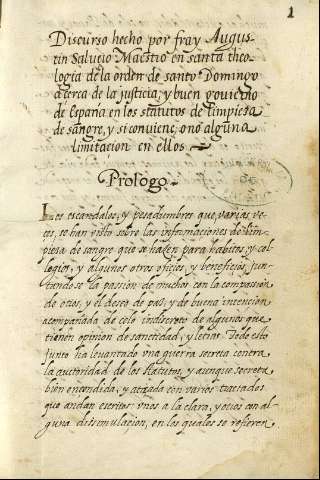 1
Discurso hecho por fray Augus-
tin Salucio Maestro en santa theo-
logia de la orden de santo Domingo
acerca de la justicia, y buen govierno
de España en los statutos de limpieza
de sangre, y si conviene, o no alguna
limitacion en ellos
Prologo.
Los escandalos, y pesadumbres que varias ve-
ces, se han visto sobre las informaciones de lim-
pieza de sangre que se hazen para habitos, y col-
legios, y algunos otros oficios, y beneficios, jun-
tandose la passion de muchos con la compassion
de otros, y el deseo de paz, y de buena intencion
acompañada de celo indiscreto de algunos que
tienen opinion de sanctidad, y letras. Todo esto
junto ha levantado una guerra secreta contra
la auctoridad de los statutos, y aunque secreta
bien encendida, y atizada con varios tractados
que andan escritos unos a la clara, y otros con al-
guna dissimulacion, en los quales se refieren